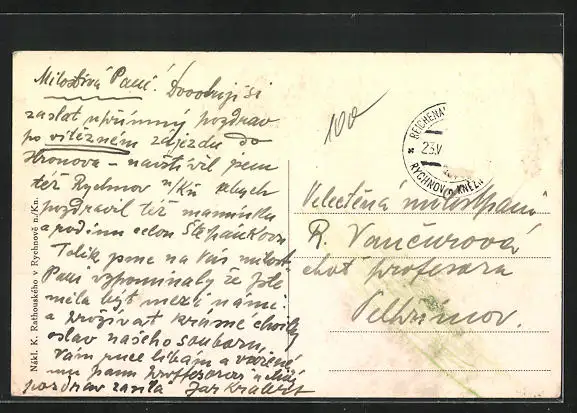 Milostivá Paní! Dovoluji si
zaslat upřímný pozdrav
po vítězném zájezdu do
Hronova – navštívil jsem
též Rychnov n/Kn abych
pozdravil též maminku
a rodinu celou Štěpánkovu
Tolik jsme na Vás milost.
Paní vzpomínaly že jste
měla být mezi námi
a prožívat krásné chvíle
oslav našeho souboru,
Vám ruce líbám a váženému
panu profesorovi
pozdrav zasílá Jar
100
REICHENAU
23.V
RYCHNOV KNĚŽN
Velectěná milostpaní
R. Vančurová
choť profesora
Pelhřimov.
Nákl. K. Rathouského v Rychnově n./Kn.